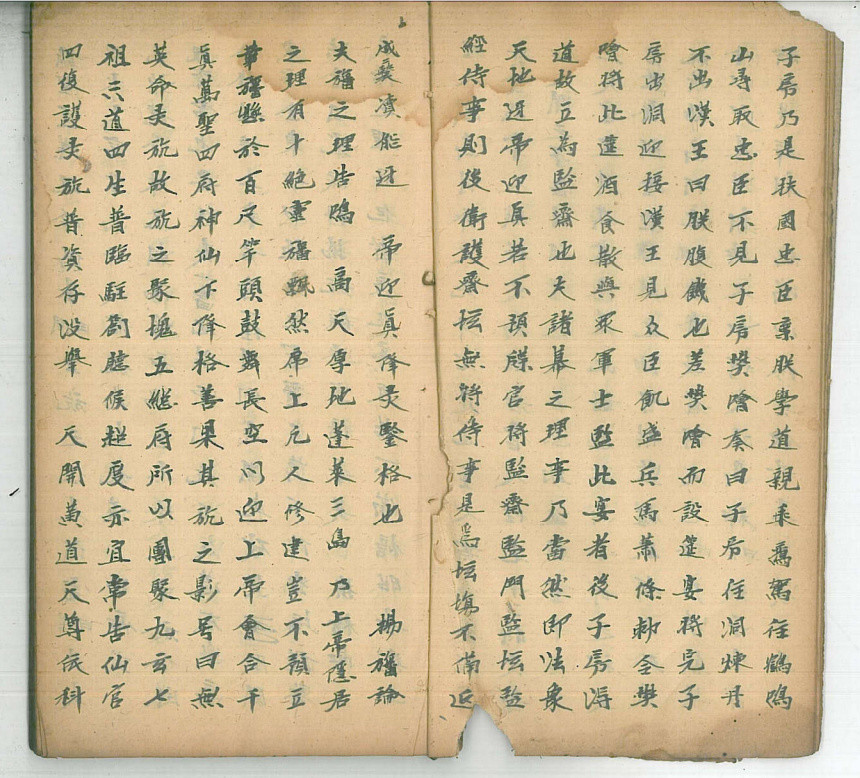 子房乃是扶國忠臣棄朕學道親乘鸞駕往鶴鳴
山尋取忠臣不見子房樊噲奏曰子房在洞煉丹
不出漢王曰朕腹饑也差樊噲而設筵宴將完子
房出洞迎接漢王見攵臣飢盛兵馬蕭條勅令樊
噲將此筵酒食散與眾軍士監此宴者後子房得
道故立為監齋也夫諸幕之理事乃當然即法衆
天地迓帝迎真若不預牒官將監齋監門監坛監
經侍事則後衛護齋坛無將侍事是為坛塲不備近
成褻瀆能迓 帝迎真降灵鑒格也 揚旛論
夫旛之理告鳴 高天厚地蓬萊三島乃上帝隱居
之理有十絶靈旛飄然席上凡人修建豈不預立
華旛懸於百尺竿頭鼓舞長空以迎上帝會合千
真萬聖四府神仙下降格善果其旐之影名曰無
英命灵旐故旐之聚塊五継府所以團聚九玄七
祖六道四生普臨駐劄聽候超度亦宜常告仙官
四復護灵旐普資存没舉 天開黃道天尊依科